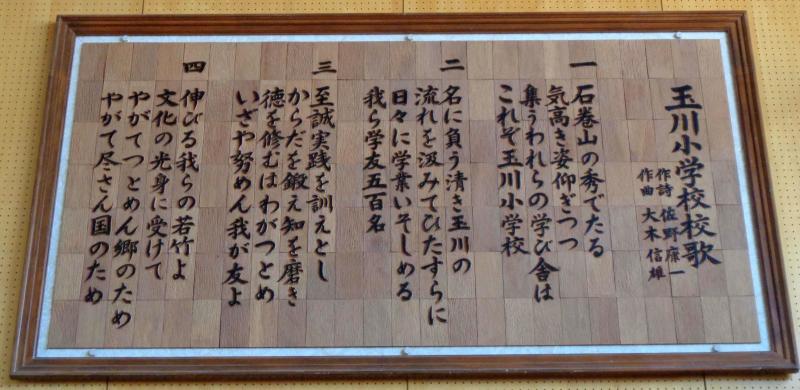 玉川小学校校歌
作詩 佐野廉一
作曲 大木信雄
一 石巻山の秀でたる
気高き姿仰ぎつつ
集うわれらの学び舎は
これぞ玉川小学校
二 名に負う清き玉川の
流れを汲みてひたすらに
日々に学業いそしめる
我ら学友五百名
三 至誠実践を訓えとし
からだを鍛え知を磨き
徳を修むはわがつとめ
いざや努めん我が友よ
四 伸びる我らの若竹よ
文化の光身に受けて
やがてつとめん郷のため
やがて尽さん国のため